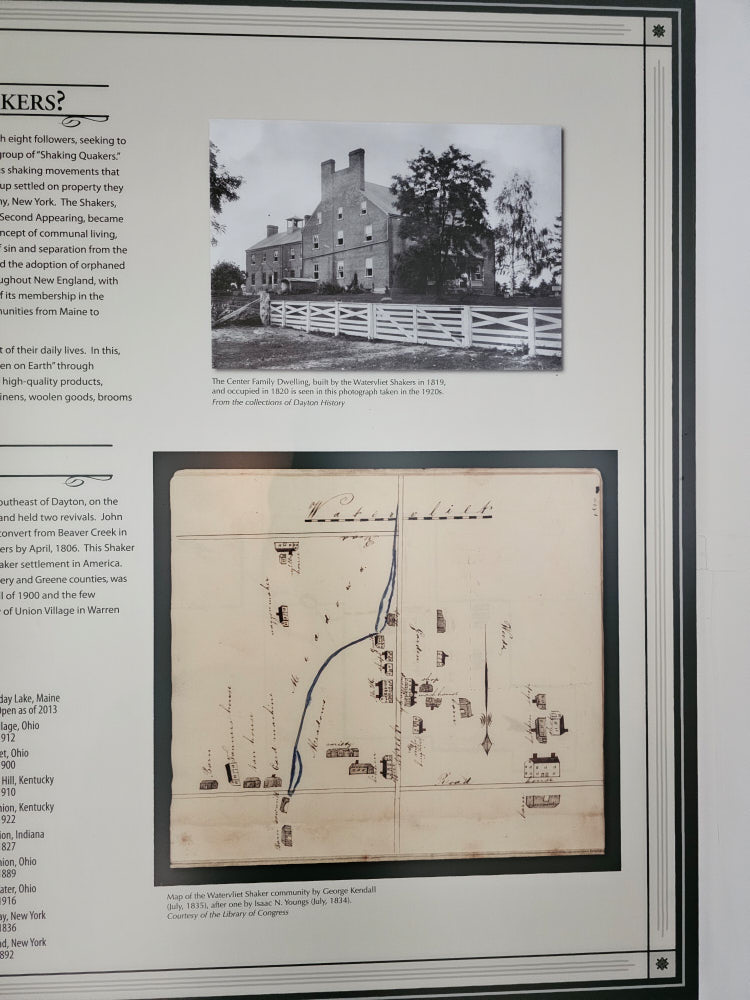 KERS?
h eight followers, seeking to
group of "Shaking Quakers."
s shaking movements that
up settled on property they
ny, New York. The Shakers,
Second Appearing, became
ncept of communal living,
f sin and separation from the
d the adoption of orphaned
ughout New England, with
f its membership in the
munities from Maine to
t of their daily lives. In this,
en on Earth" through
high-quality products,
inens, woolen goods, brooms
outheast of Dayton, on the
and held two revivals. John
convert from Beaver Creek in
ers by April, 1806. This Shaker
aker settlement in America.
ery and Greene counties, was
ll of 1900 and the few
of Union Village in Warren
day Lake, Maine
Open as of 2013
llage, Ohio
1912
et, Ohio
900
Hill, Kentucky
910
nion, Kentucky
922
ion, Indiana
827
nion, Ohio
889
ater, Ohio
1916
ay, New York
836
ad, New York
892
The Center Family Dwelling, built by the Watervliet Shakers in 1819,
and occupied in 1820 is seen in this photograph taken in the 1920s.
From the collections of Dayton History
Watervliet
waggon maker
Meadows
Garden
Woods
Barn
Tanners house
Card machine
Meadows
Road
Map of the Watervliet Shaker community by George Kendall
(July, 1835), after one by Isaac N. Youngs (July, 1834).
Courtesy of the Library of Congress